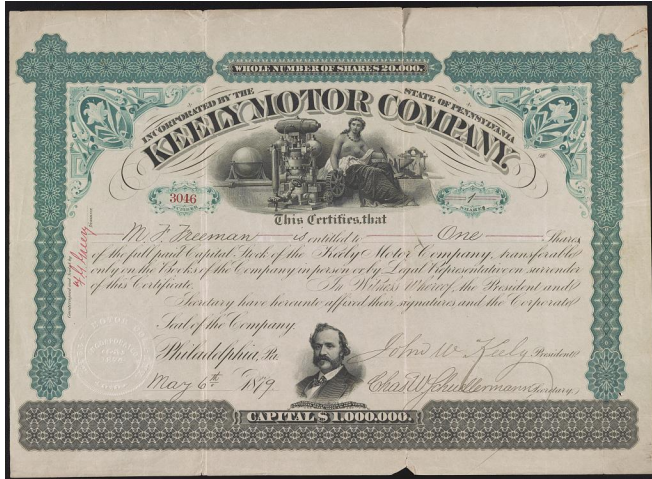 WHOLE NUMBER OF SHARES 20.000.
INCORPORATED BY THE STATE OF PENNSYLVANIA
KEELY MOTOR COMPANY
3046
1
SHARES
This Certifies, that
M. F. Freeman is entitled to One Shares
of the full paid Capital Stock of the Keely Motor Company, transferable
only on the Books of the Company in person or by Legal Representative on surrender
of this Certificate. In Witness Whereof, the President and
Secretary have hereunto affixed their signatures and the Corporate
Seal of the Company.
Philadelphia, Pa.
May 6th 1879
John W. Keely President
Chas. W. Secretary
CAPITAL $1.000.000.